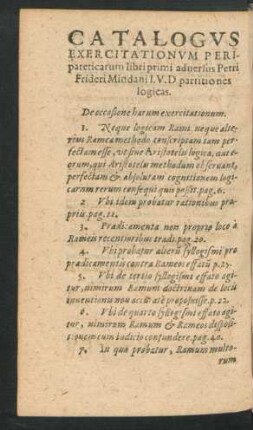 CATALOGVS
EXERCITATIONVM PERI-
pateticarum libri primi adversus Petri
Frideri Mindani I.V.D. partitiones
logicas.
De occasione harum exercitationum.
1. Neque logicam Rami, neque alte-
rius Ramea methodo conscriptam tam per-
fectam esse, ut sine Aristotelis logica, aut e-
orum, qui Aristotelis methodum observant,
perfectam & absolutam cognitionem logi-
carum rerum consequi quis possit. pag. 6.
2. Vbi idem probatur rationibus pro-
priis. pag. 11.
3. Prædicamenta non proprio loco à
Rameis recentioribus tradi. pag. 20.
4. Vbi probatur alterū syllogismi pro
prædicamentis contra Rameos effatū p. 23.
5. Vbi de tertio syllogismi effato agi-
tur, nimirum Ramum doctrinam de locis
inventionis non accuratè proposuisse. p. 32.
6. Vbi de quarto syllogismi effato agi-
tur, nimirum Ramum & Rameos disposi-
tionem cum iudicio confundere. pag. 40.
7. In quâ probatur, Ramum multo-
rum